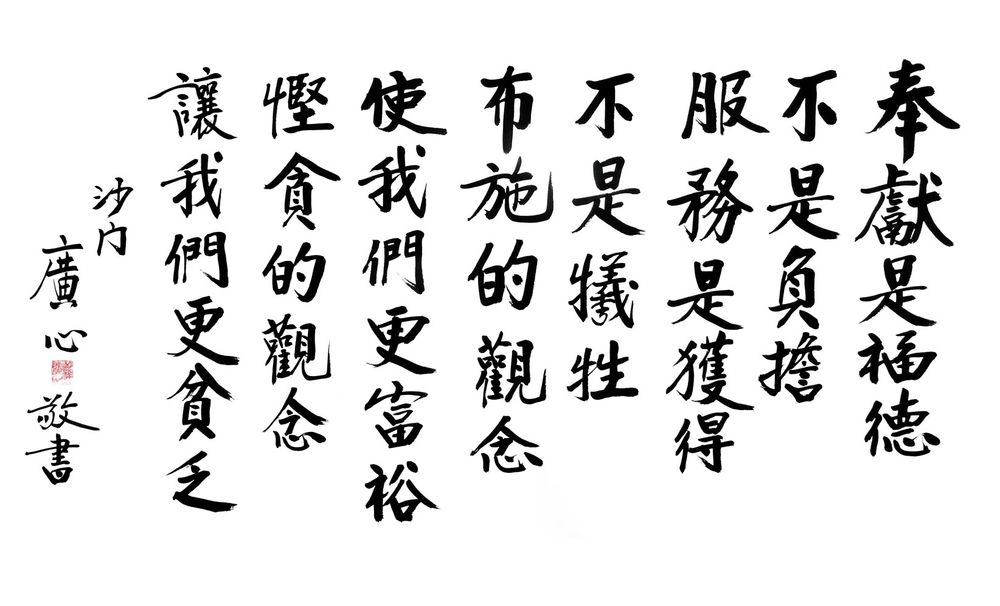 奉獻是福德
不是負擔
服務是獲得
不是犧牲
布施的觀念
使我們更富裕
慳貪的觀念
讓我們更貧乏
沙门
廣心
敬書